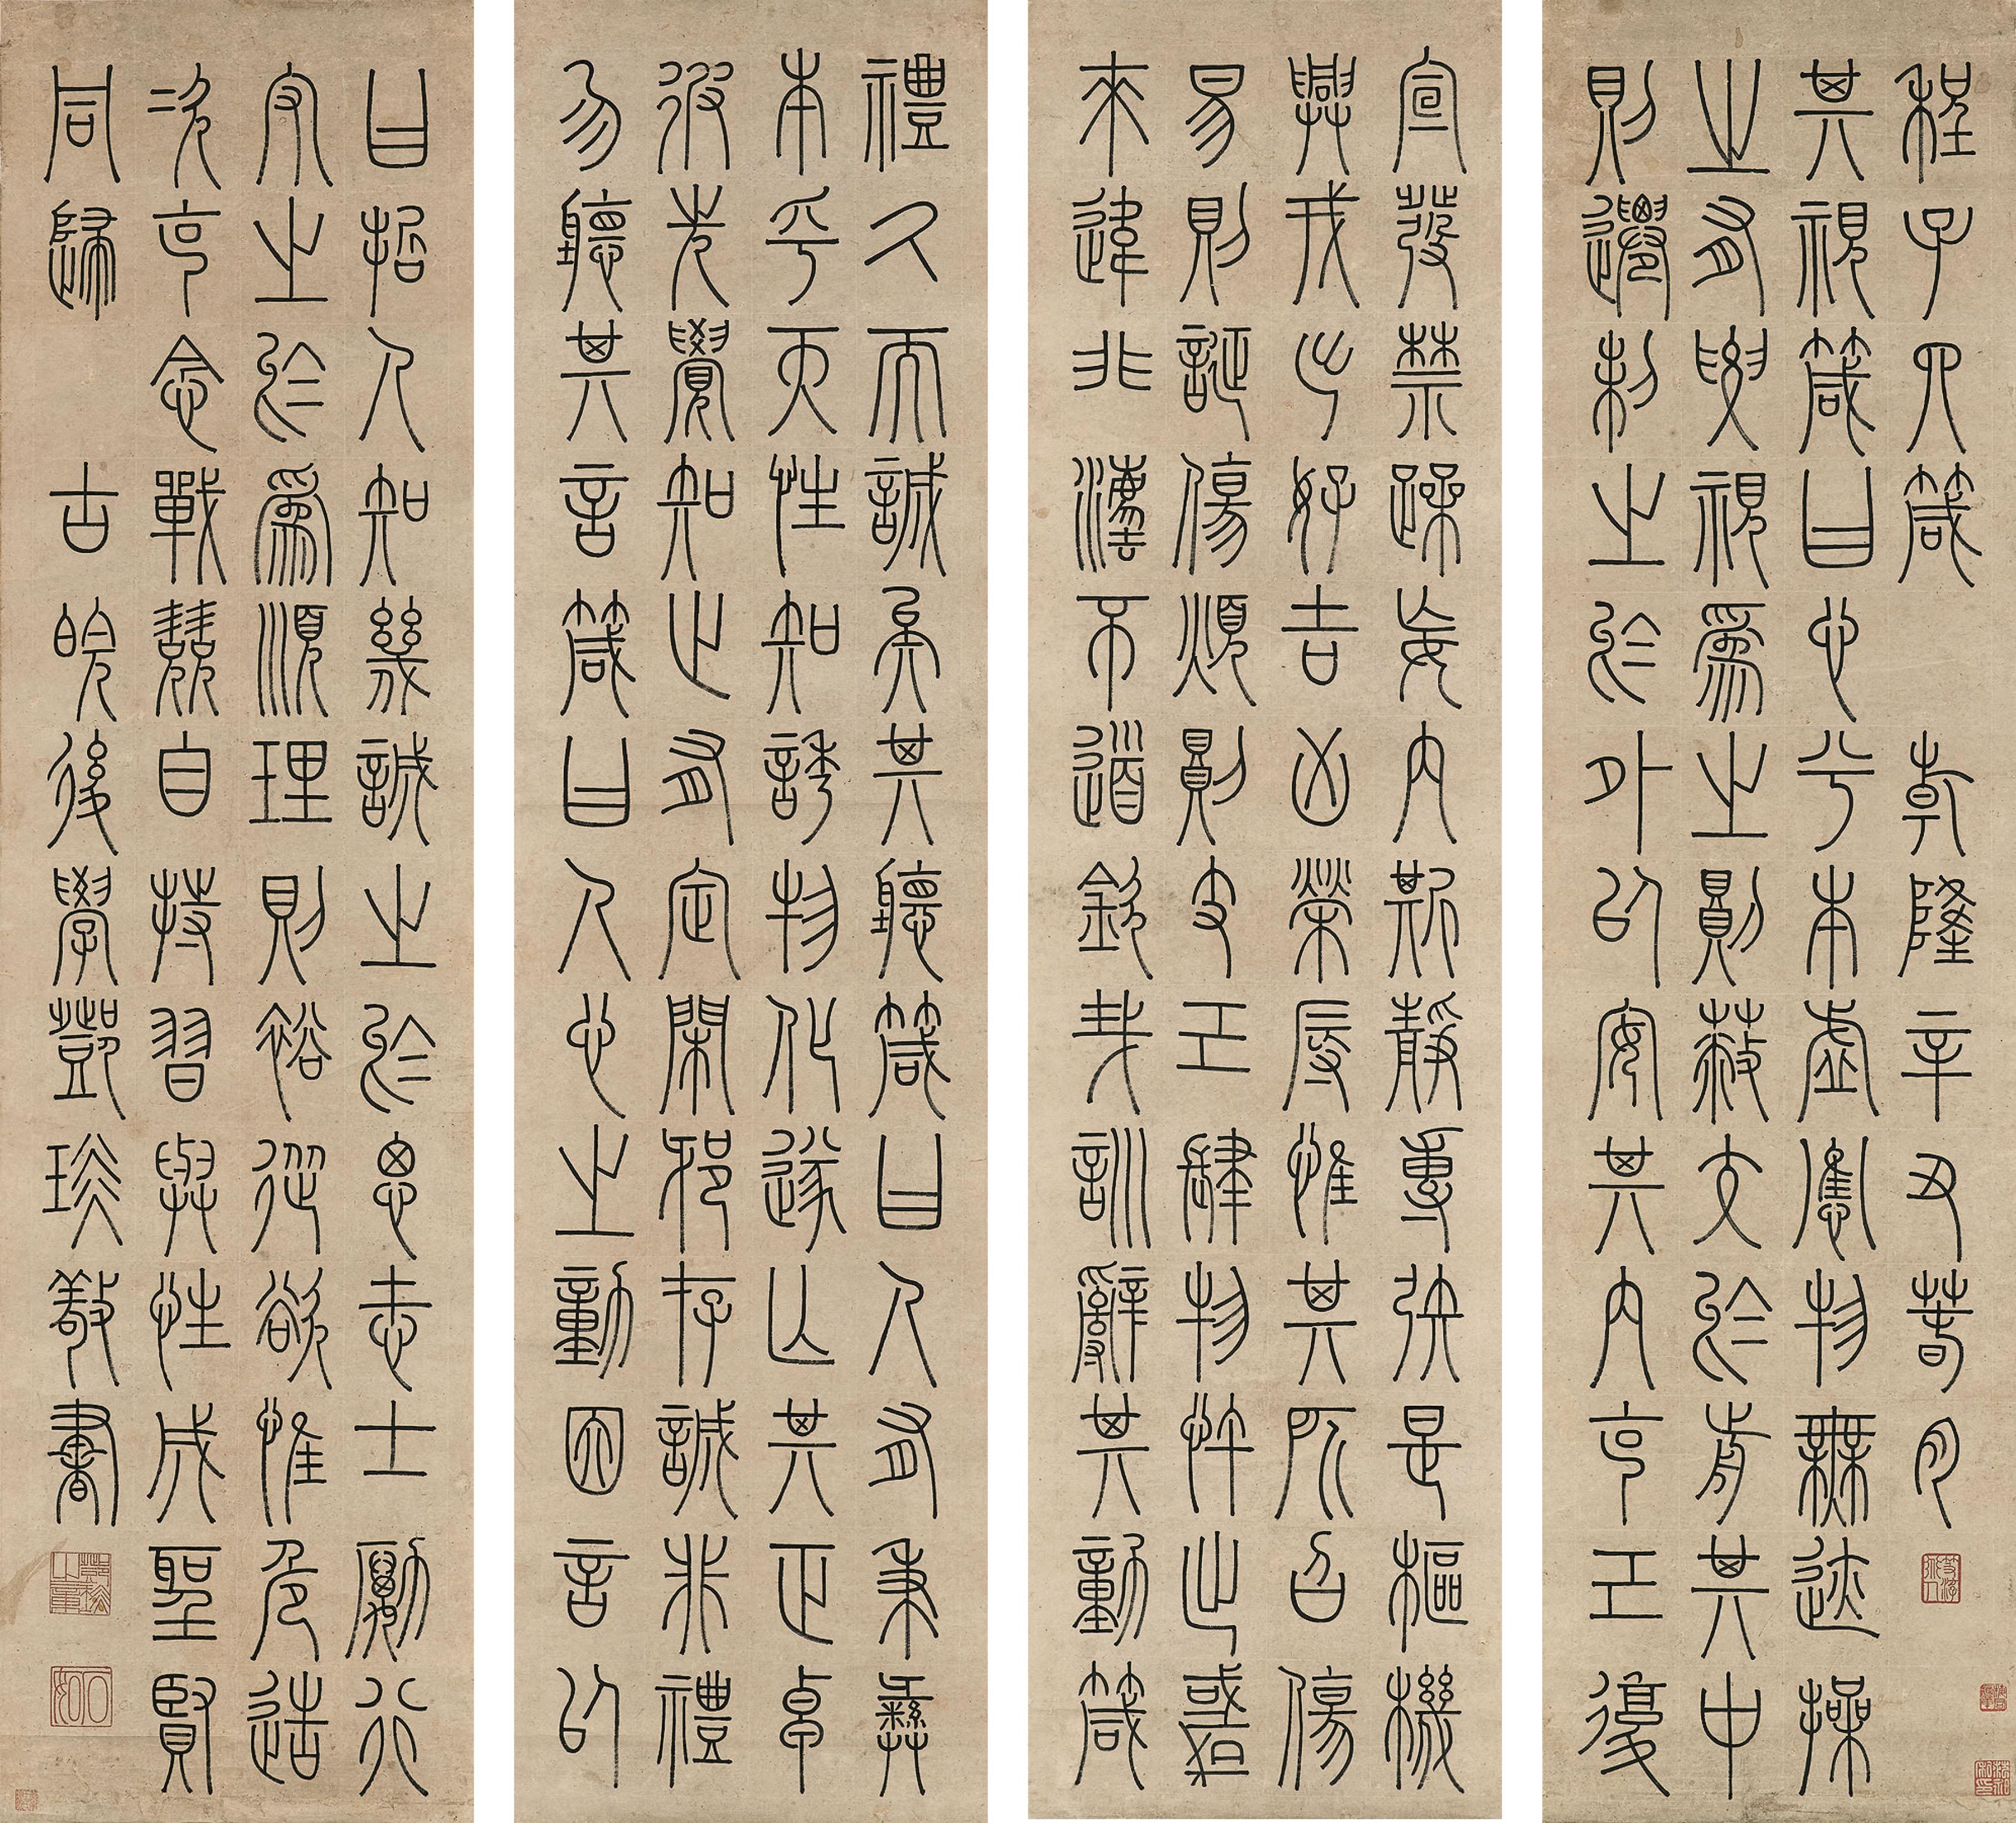 程子四箴 乾隆辛丑萅月
其視箴曰心兮本虛應物無迹操
之有要視爲之則蔽交於前其中
則遷制之於外以安其內克己復
禮久而誠矣其聽箴曰人有秉彝
本乎天性知誘物化遂亡其正卓
彼先覺知止有定閑邪存誠非禮
勿聽其言箴曰人心之動因言以
宣發禁躁妄內斯靜專矧是樞機
興戎出好吉凶榮辱惟其所召傷
易則誕傷煩則支己肆物忤出悖
來違非灋不道欽哉訓辭其動箴
曰哲人知幾誠之於思志士勵行
守之於爲順理則裕從欲惟危造
次克念戰兢自持習與性成聖賢
同歸 古皖後學鄧琰敬書
石如